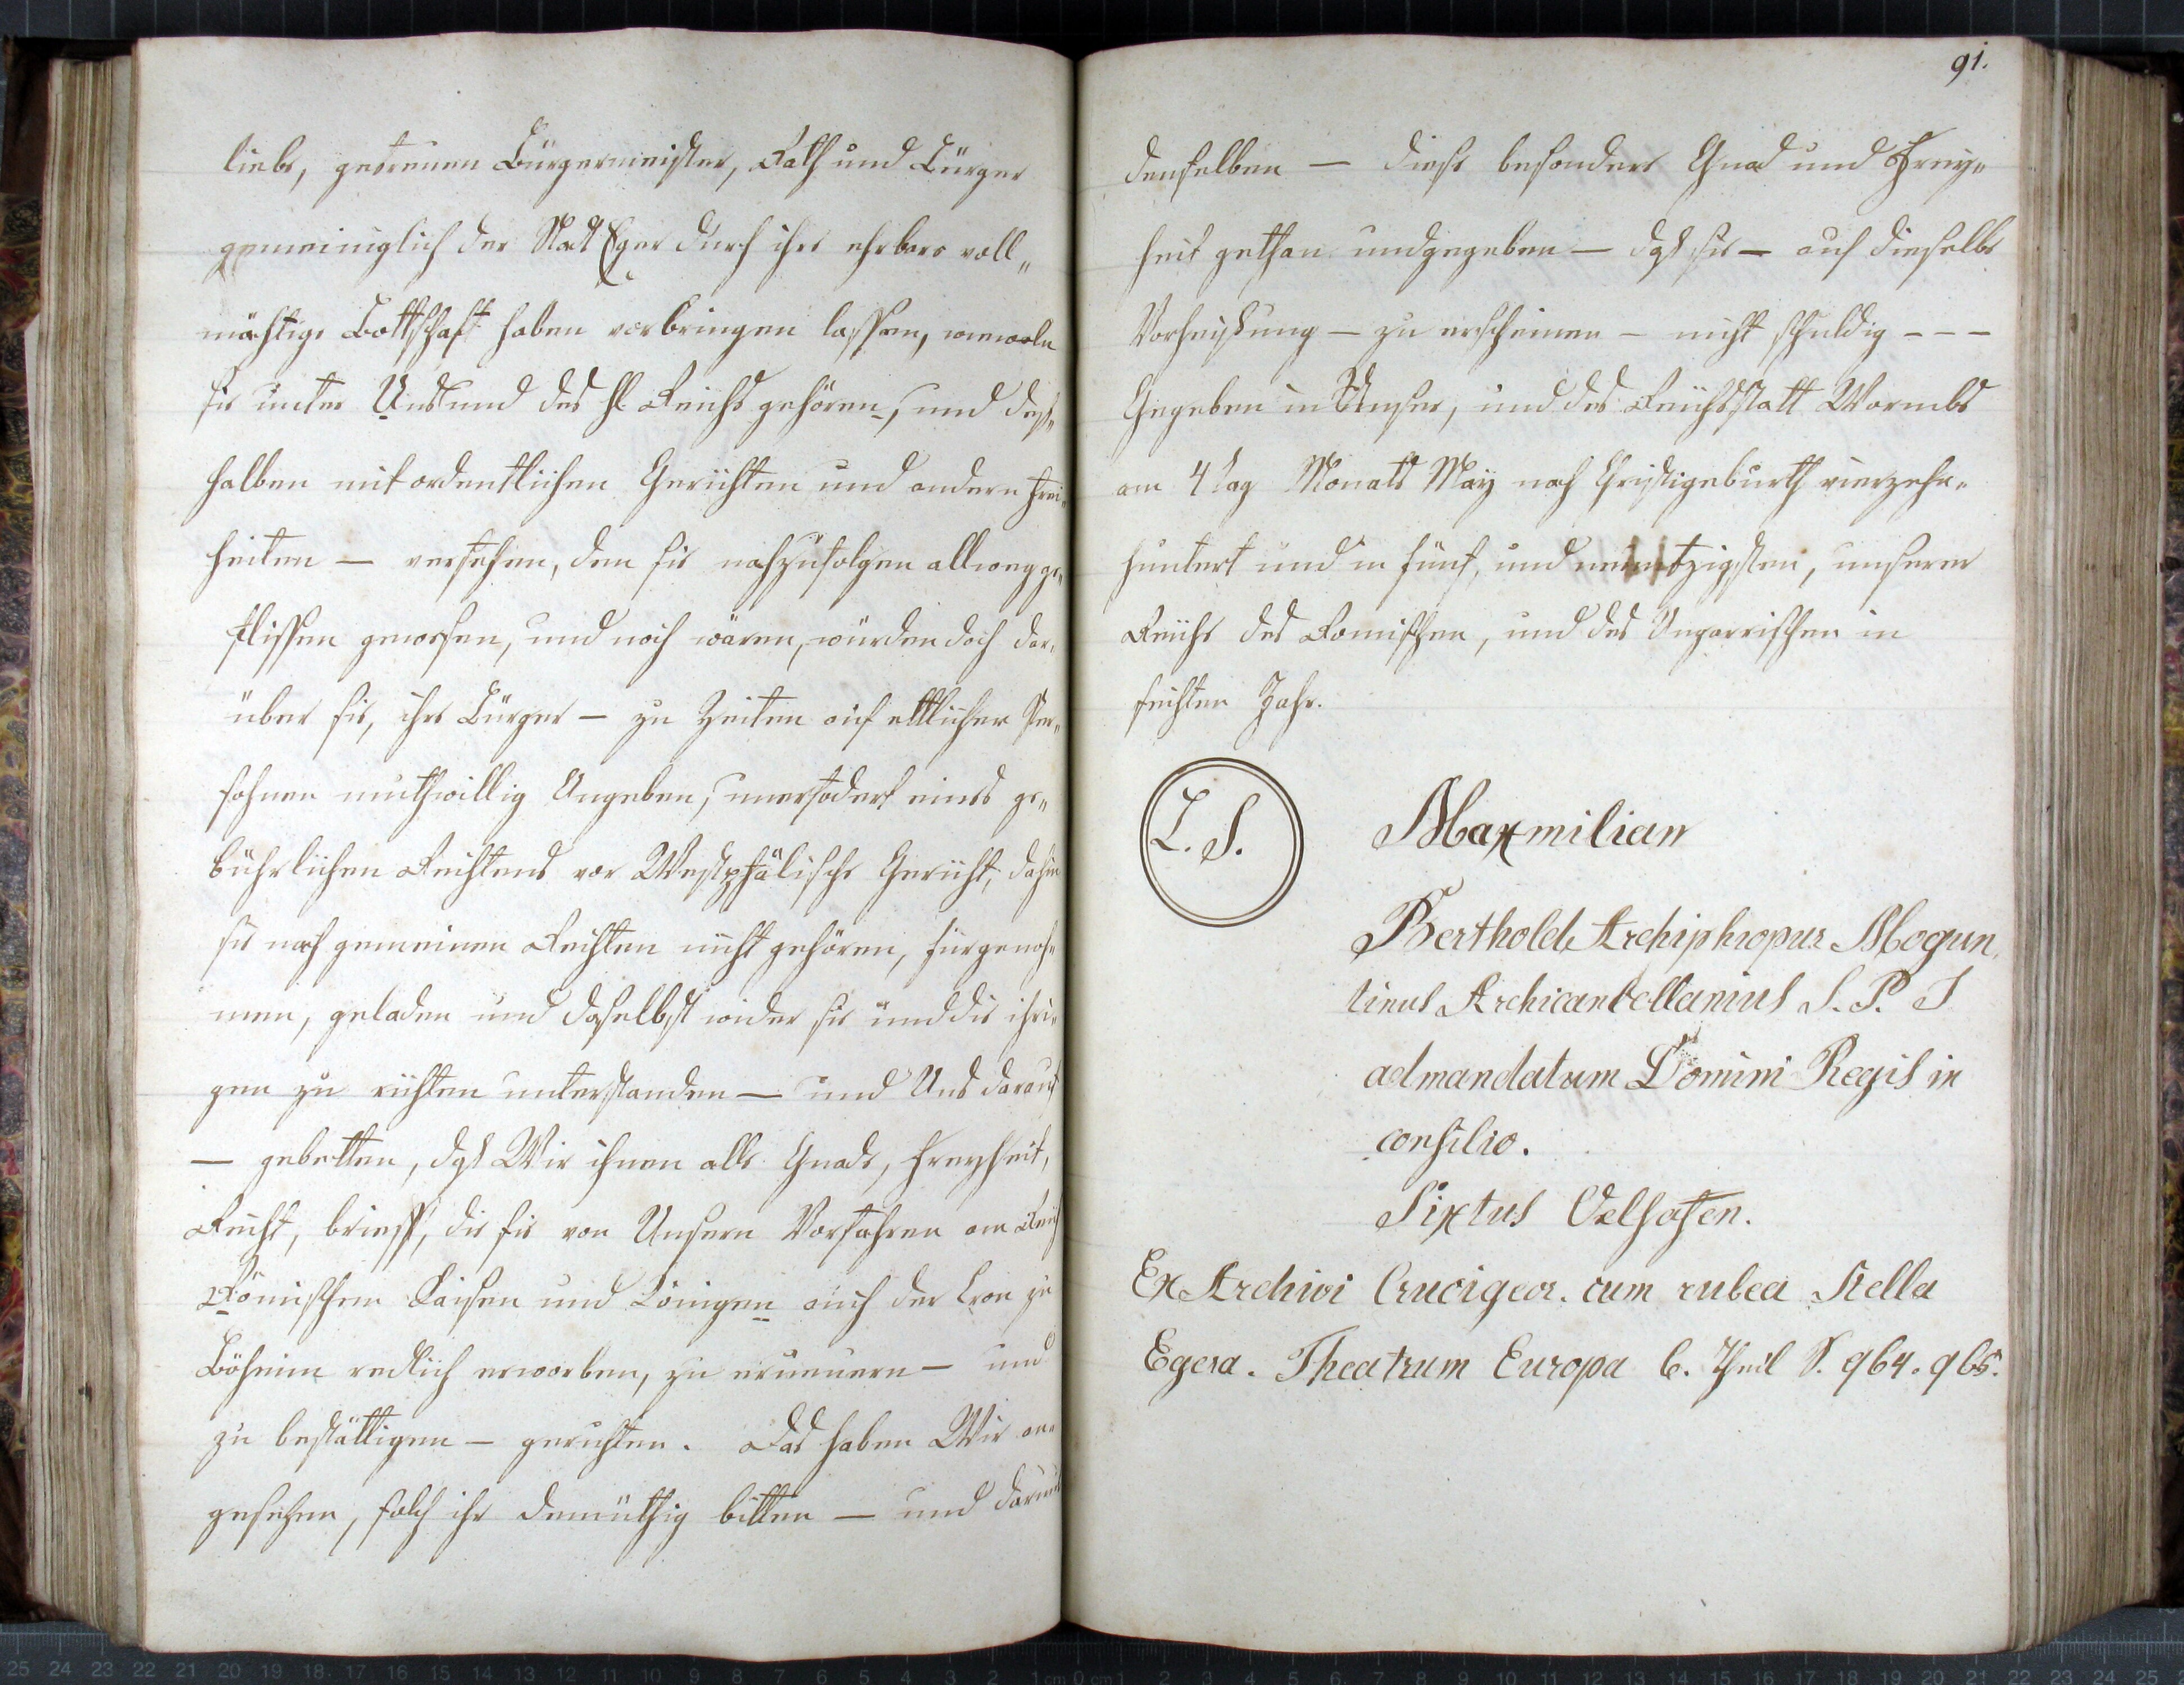 liebe, getreuen Bürgermeister, Rath und Bürger
gemeiniglich der Stat Eger durch ihre ehrbare voll„
mächtige Bottschaft haben vorbringen lassen, wiewoln
sie unter Uns und des hl. Reichs gehören, und deß„
halben mit ordentlichen Gerichten und andern Frei„
heiten — versehen, den sie nachzufolgen allweg ge„
flissen gewesen, und noch wären, würden doch dar„
über sie, ihre Bürger — zu Zeiten auf ettlicher Per„
sohnen muthwillig Angeben, unerfodert eines ge„
bührlichen Rechtens vor Westphälische Gericht, dahin
sie nach gemeinen Rechten nicht gehören, fürgenoh„
men, geladen und daselbst wider sie und die ihri„
gen zu richten unterstanden — und Uns darauf
— gebetten, daß Wir ihnen alle Gnade, Freyheit,
Recht, brieff, die sie von Unsern Vorfahren am Reich
Römischen Kaisern und Königen auch der Cron zu
Böheim redlich erworben, zu erneuern — und
zu bestättigen — geruhten. Das haben Wir an„
gesehen, solch ihr demüthig bitten — und darum
91.
denselben — diese besondere Gnad und Frey„
heit gethan und gegeben — daß sie — auf dieselbe
Vorheischung — zu erscheinen — nicht schuldig - - -
Gegeben in Unser, und des Reichsstatt Wormbs
am 4 tag Monats May nach Christigeburth vierzehn„
huntert und in fünf, und neuntzigsten, unserer
Reiche des Romischen, und des Ungarrischen in
sechsten Jahr.
L. S.
Maxmilian
Berthold Archiphropus Mogun„
tinus Archicancellarius S. P. I
ad mandatum Domini Regis in
consilio.
Sixtus Oelhafen.
Ex Archivi Cruciger. cum rubea Stella
Egera. Theatrum Europa 6. Theil S. 964. 965.